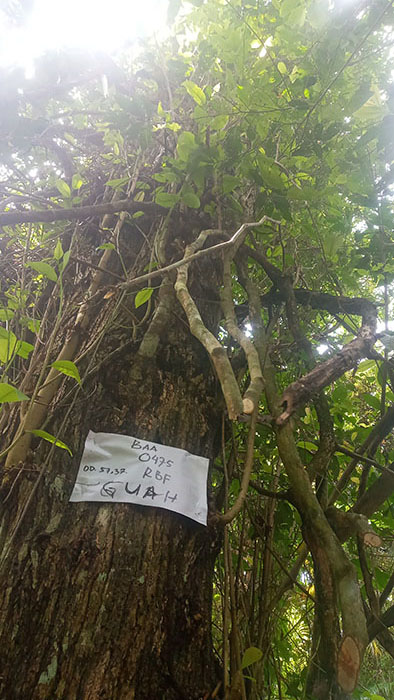 BAA
0475
OD. 57,37. RBF
GUAH